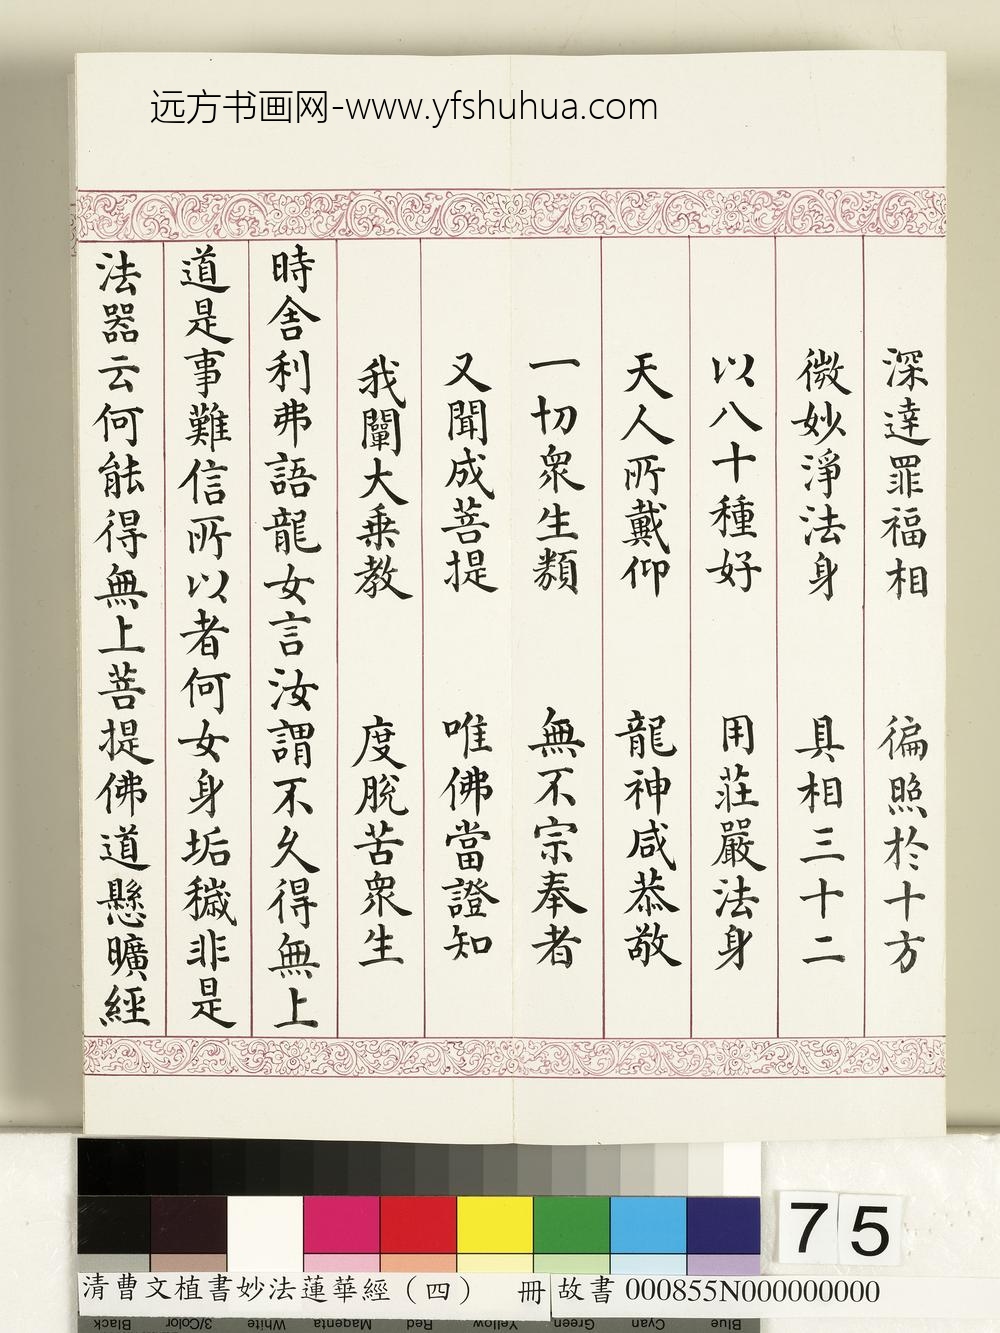 远方书画网-www.yfshuhua.com
深達罪福相 徧照於十方
微妙淨法身 具相三十二
以八十種好 用莊嚴法身
天人所戴仰 龍神咸恭敬
一切衆生類 無不宗奉者
又聞成菩提 唯佛當證知
我闡大乗教 度脫苦衆生
時舍利弗語龍女言汝謂不久得無上
道是事難信所以者何女身垢穢非是
法器云何能得無上菩提佛道懸曠經
75
清曹文植書妙法蓮華經（四） 冊 故書 000855N000000000
Black 3/Color White Magenta Red Yellow Green Cyan Blue